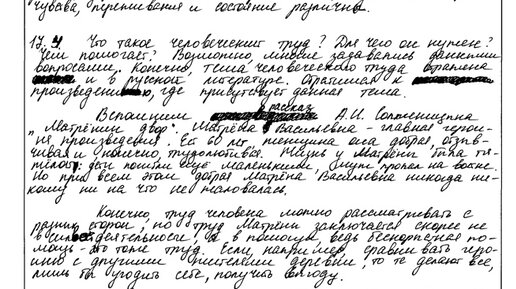 чувства, переживания и состояние различны.
17.4. Что такое человеческий труд? Для чего он нужен?
Чем помогает? Возможно, многие задавались данными
вопросами. Конечно, тема человеческого труда отражена
и в русской литературе. Обратимся к
произведению, где присутствует данная тема.
Вспомним рассказ А.И. Солженицына
"Матрёнин двор". Матрёна Васильевна - главная герои-
ня произведения. Ей 60 лет, женщина она добрая, отзыв-
чивая и конечно трудолюбивая. Жизнь у Матрёны была тя-
желой: дети погибли еще маленькими, муж пропал на войне.
Но при всем этом добрая Матрёна Васильевна никогда ни-
кому ни на что не жаловалась.
Конечно, труд человека можно рассматривать с
разных сторон, но труд Матрёны заключается скорее не
в деятельности, а в помощи, ведь бескорыстная по-
мощь - это тоже труд. Если, например, сравнивать герои-
ню с другими жителями деревни, то те делают все,
лишь бы угодить себе, получить выгоду.